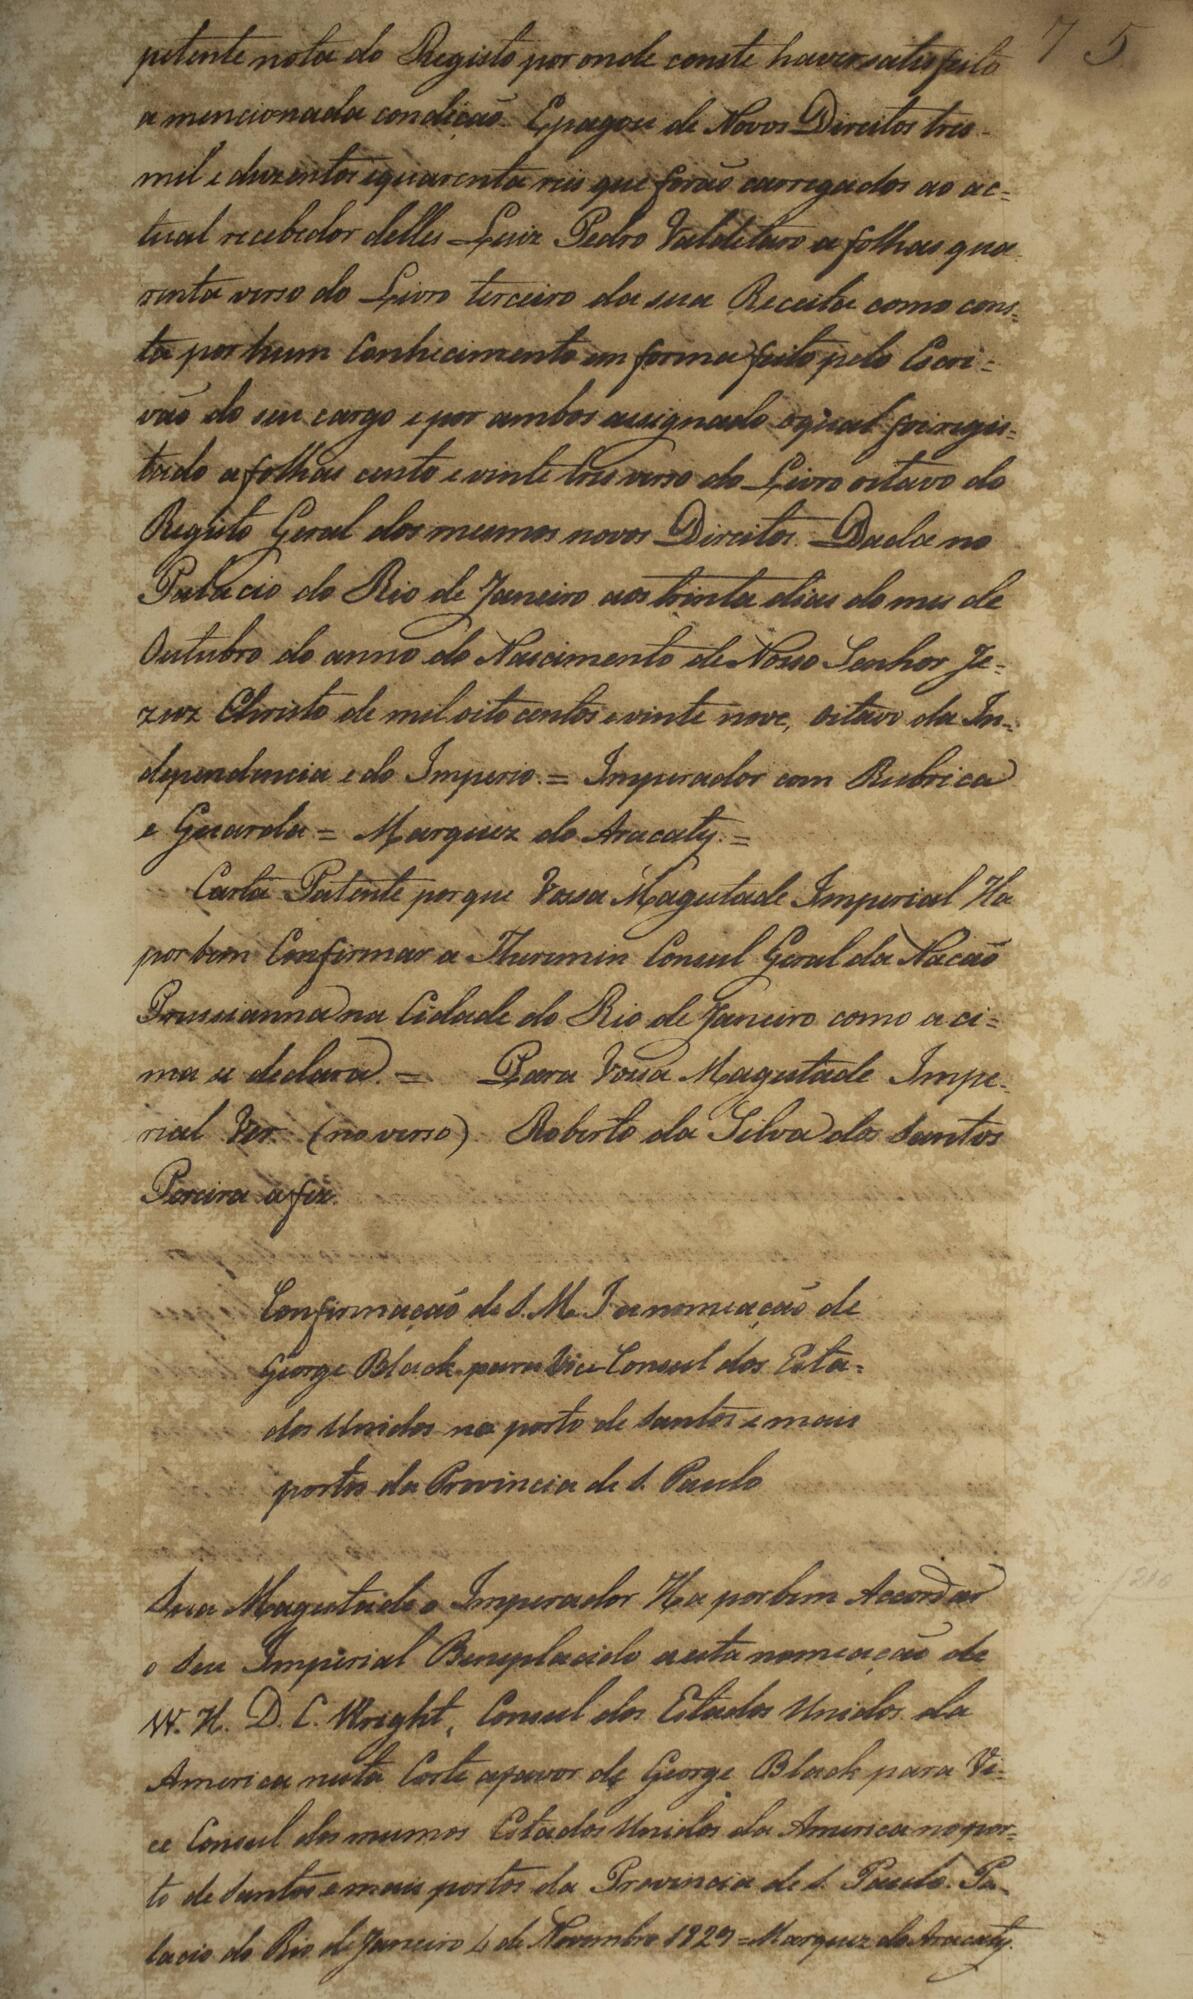 75
petente nota do Registo por onde conste haver satisfeito
a mencionada condição. E pagou de Novos Direitos tres
mil e duzentos e quarenta reis que forão carregados ao ac=
tual recebedor delles Luiz Pedro Valdetaro a folhas qua
renta verso do Livro terceiro da sua Receita como cons=
ta por hum Conhecimento em forma feito pelo Escri=
vão do seu cargo e por ambos assignado o qual foi regis=
trado a folhas cento e vinte tres verso do Livro oitavo do
Registo Geral dos mesmos novos Direitos. Dada no
Palacio do Rio de Janeiro aos trinta dias do mes de
Outubro do anno do Nascimento de Nosso Senhor Je=
zuz Christo de mil oito centos e vinte nove, oitavo da In=
dependencia e do Imperio. = Imperador com Rubrica
e Guarda = Marquez do Aracaty. =
Carta Patente por que Vossa Magestade Imperial Ha
por bem Confirmar a Theremin Consul Geral da Nação
Prussianna na Cidade do Rio de Janeiro como aci=
ma se declara. = Para Vossa Magestade Impe=
rial Ver (no verso) Roberto da Silva dos Santos
Pereira a fez.
Confirmação de S. M. I a nomeação de
George Black para Vice Consul dos Esta=
dos Unidos no porto de Santos e mais
portos da Provincia de S. Paulo
Sua Magestade o Imperador Ha por bem Accordar
o Seu Imperial Beneplacido a esta nomeação de
W. H. D. C. Wright, Consul dos Estados Unidos da
America nesta Corte a favor de George Black para Vi=
ce Consul dos mesmos Estados Unidos da America no por=
to de Santos e mais portos da Provincia de S. Paulo. Pa=
lacio do Rio de Janeiro 4 de Novembro 1829 = Marquez do Aracaty.